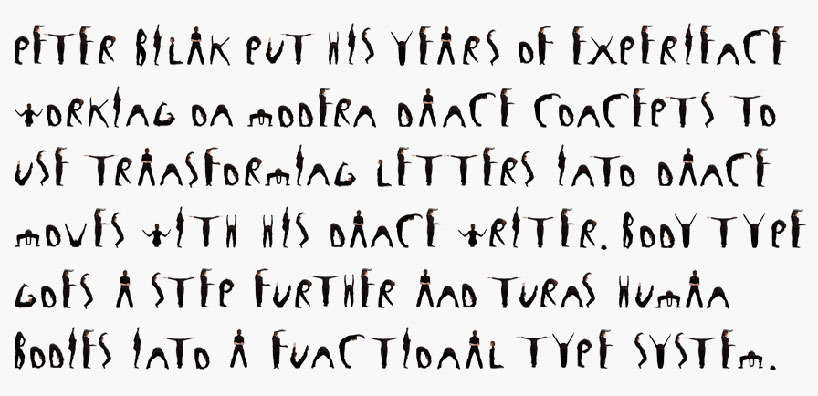 PETER BILAK PUT HIS YEARS OF EXPERIENCE
WORKING ON MODERN DANCE CONCEPTS TO
USE TRANSFORMING LETTERS INTO DANCE
MOVES WITH HIS DANCE WRITER. BODY TYPE
GOES A STEP FURTHER AND TURNS HUMAN
BODIES INTO A FUNCTIONAL TYPE SYSTEM.